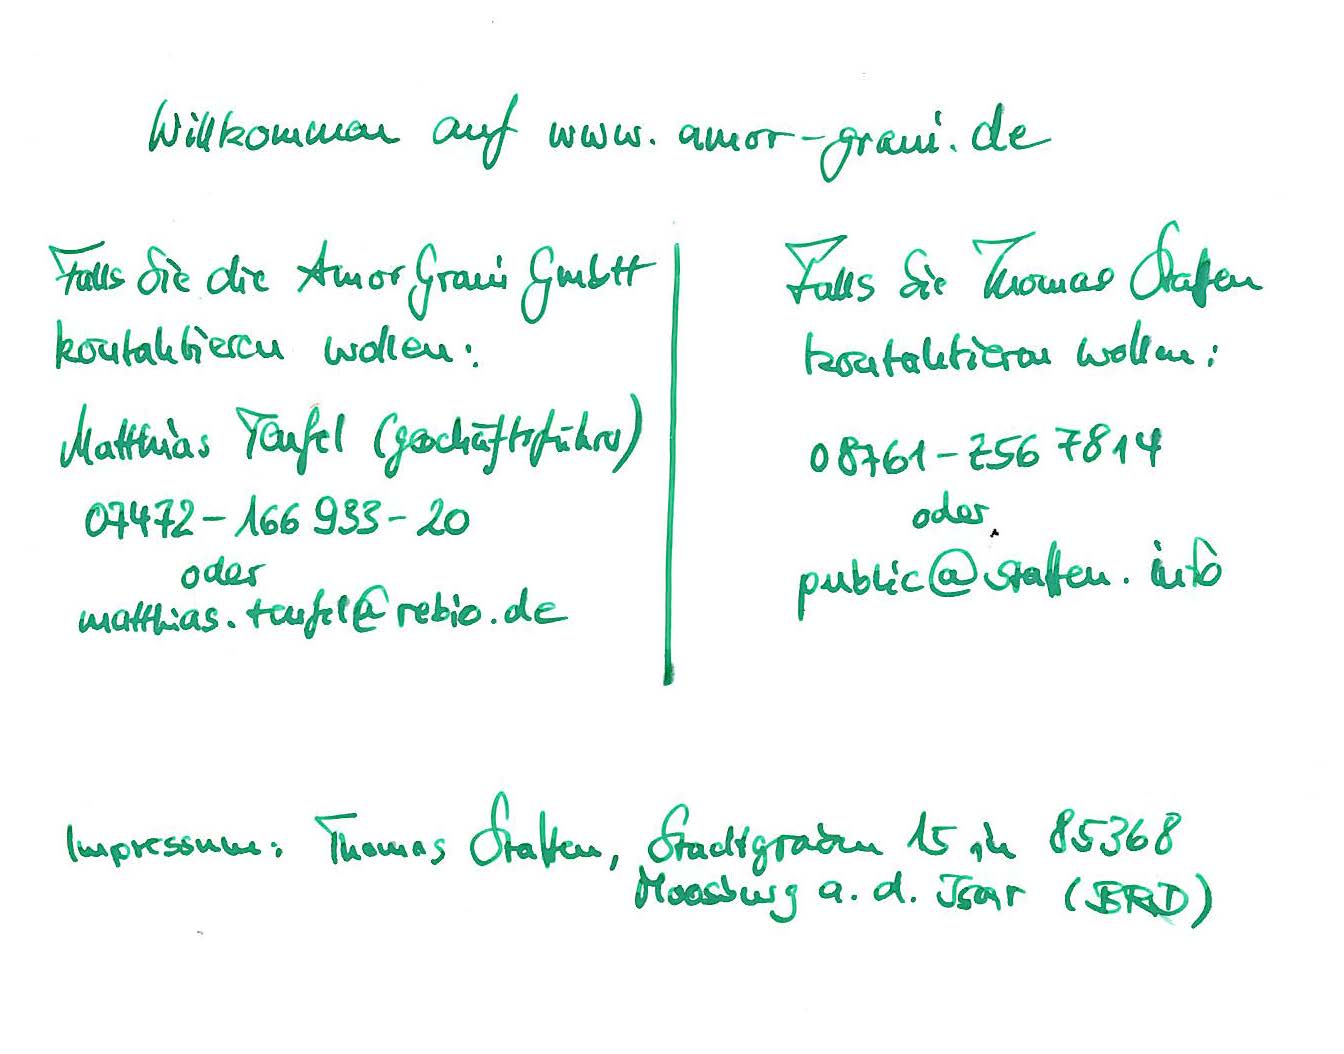 Willkommen auf www.amor-grani.de
Falls Sie die Amor Grani GmbH
kontaktieren wollen:
Matthias Teufel (Geschäftsführer)
07472-166 933-20
oder
matthias.teufel@rebio.de
Falls Sie Thomas
kontaktieren wollen:
08761-756 7814
oder
Impressum: Thomas Stadtgraben 15 in 85368
Moosburg a. d. Isar (BRD)